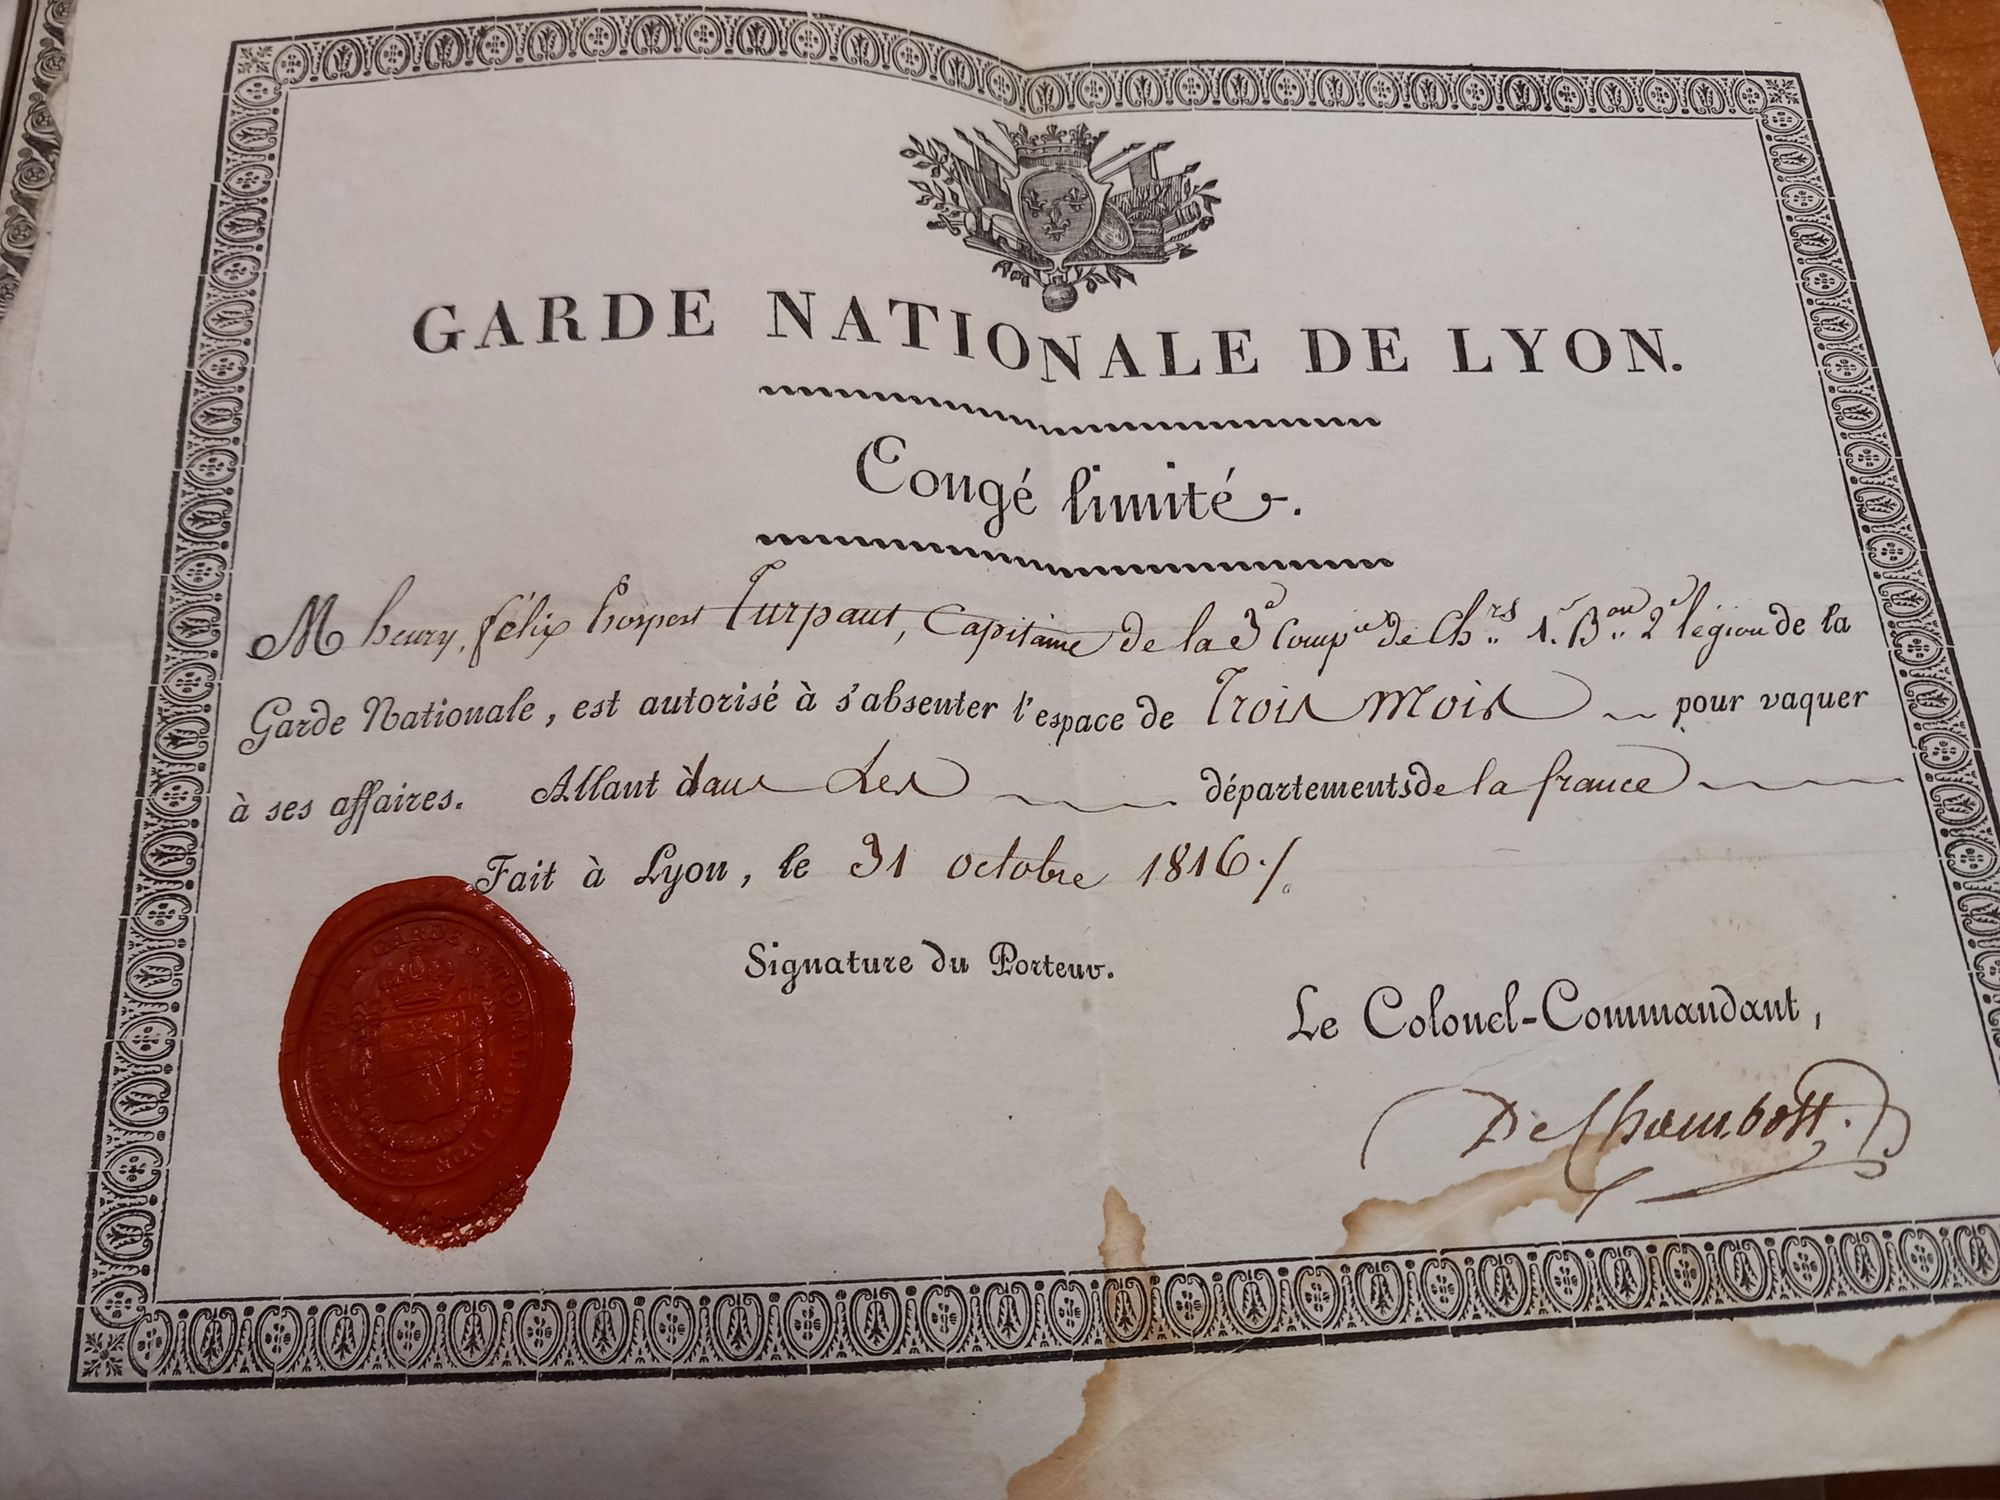 GARDE NATIONALE DE LYON.
Congé limité.
M henry félix Turpaut, Capitaine de la 3e Compie de Ch.rs 1.r B.on 2e légion de la
Garde Nationale, est autorisé à s'absenter l'espace de Trois Mois pour vaquer
à ses affaires. Allant dans Les départements de la france
Fait à Lyon, le 31 octobre 1816 ./.
Signature du Porteur.
Le Colonel-Commandant,
De Chambost
LA GARDE NATIONALE DE LYON